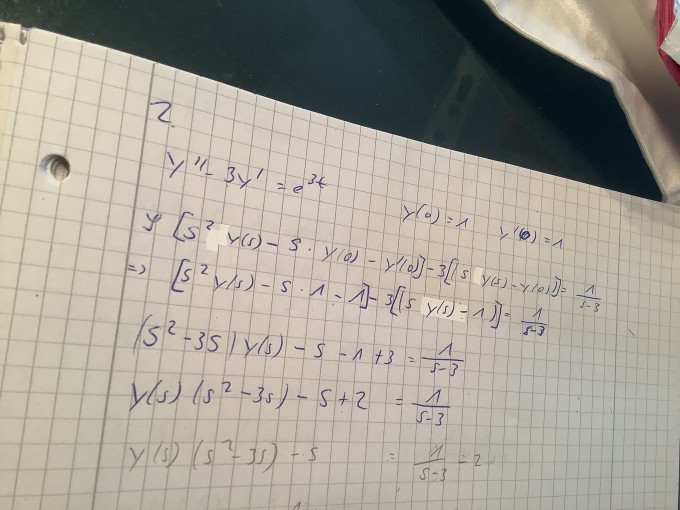 2.
y'' - 3y' = e^{3t}
y(0) = 1 y'(0) = 1
[s² y(s) - s · y(0) - y'(0)] - 3[(s y(s) - y(0)] = 1/(s-3)
=> [s² y(s) - s · 1 - 1] - 3[(s y(s) - 1)] = 1/(s-3)
(s² - 3s) y(s) - s - 1 + 3 = 1/(s-3)
y(s) (s² - 3s) - s + 2 = 1/(s-3)
y(s) (s² - 3s) - s = 1/(s-3) - 2